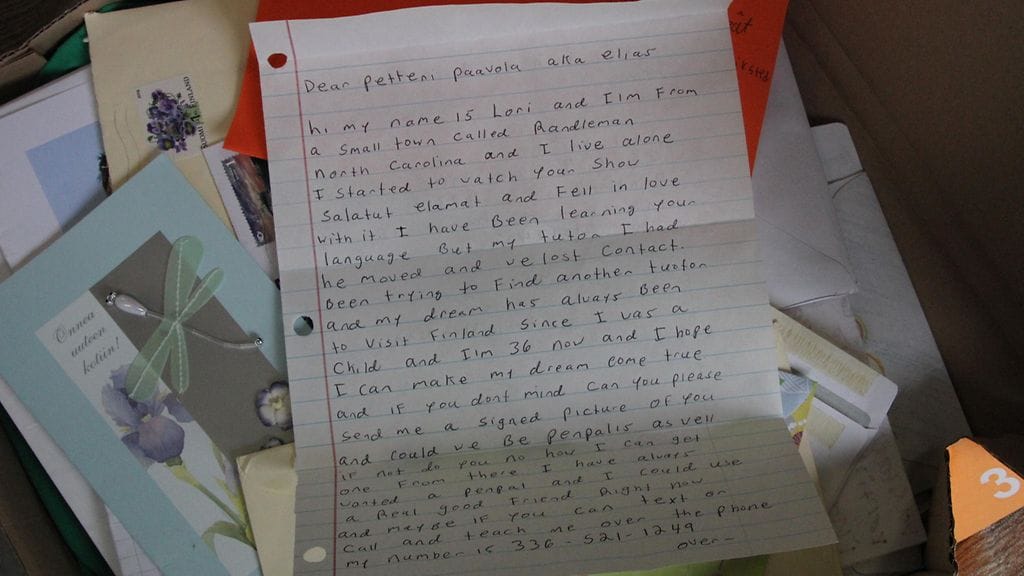 Dear petteri paavola aka elias
hi my name is Lori and I'm From
a small town called Randleman
north Carolina and I live alone
I started to watch your show
Salatut elamat and Fell in love
with it I have Been learning your
language But my tutor I had
he moved and we lost contact.
Been trying to Find another tuotor
and my dream has always Been
to visit Finland since I was a
child and I'm 36 now and I hope
I can make my dream come true
and if you dont mind can you please
send me a signed picture of you
and could we Be penpalls as well
if not do you no how I can get
one From there I have always
wanted a penpal and I could use
a Real good Friend Right now
and maybe if you can text or
call and teach me over the phone
my number is 336-521-1249
over-
Onnea
uuteen
kotiin!
FINLAND
3